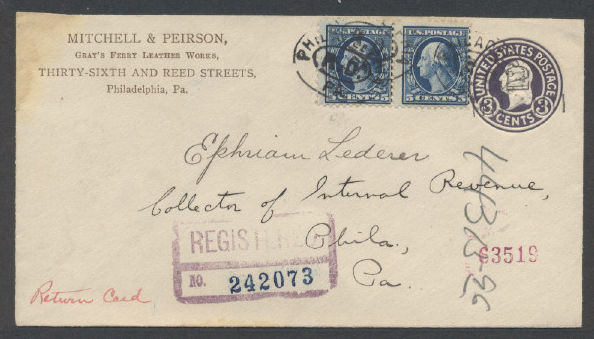 MITCHELL & PEIRSON,
GRAY'S FERRY LEATHER WORKS,
THIRTY-SIXTH AND REED STREETS,
Philadelphia, Pa.
U.S. POSTAGE
5 CENTS 5
U.S. POSTAGE
5 CENTS 5
UNITED STATES POSTAGE
3 CENTS 3
Ephriam Lederer
Collector of Internal Revenue,
Phila.,
Pa.
REGISTERED
NO. 242073
63519
Return Card